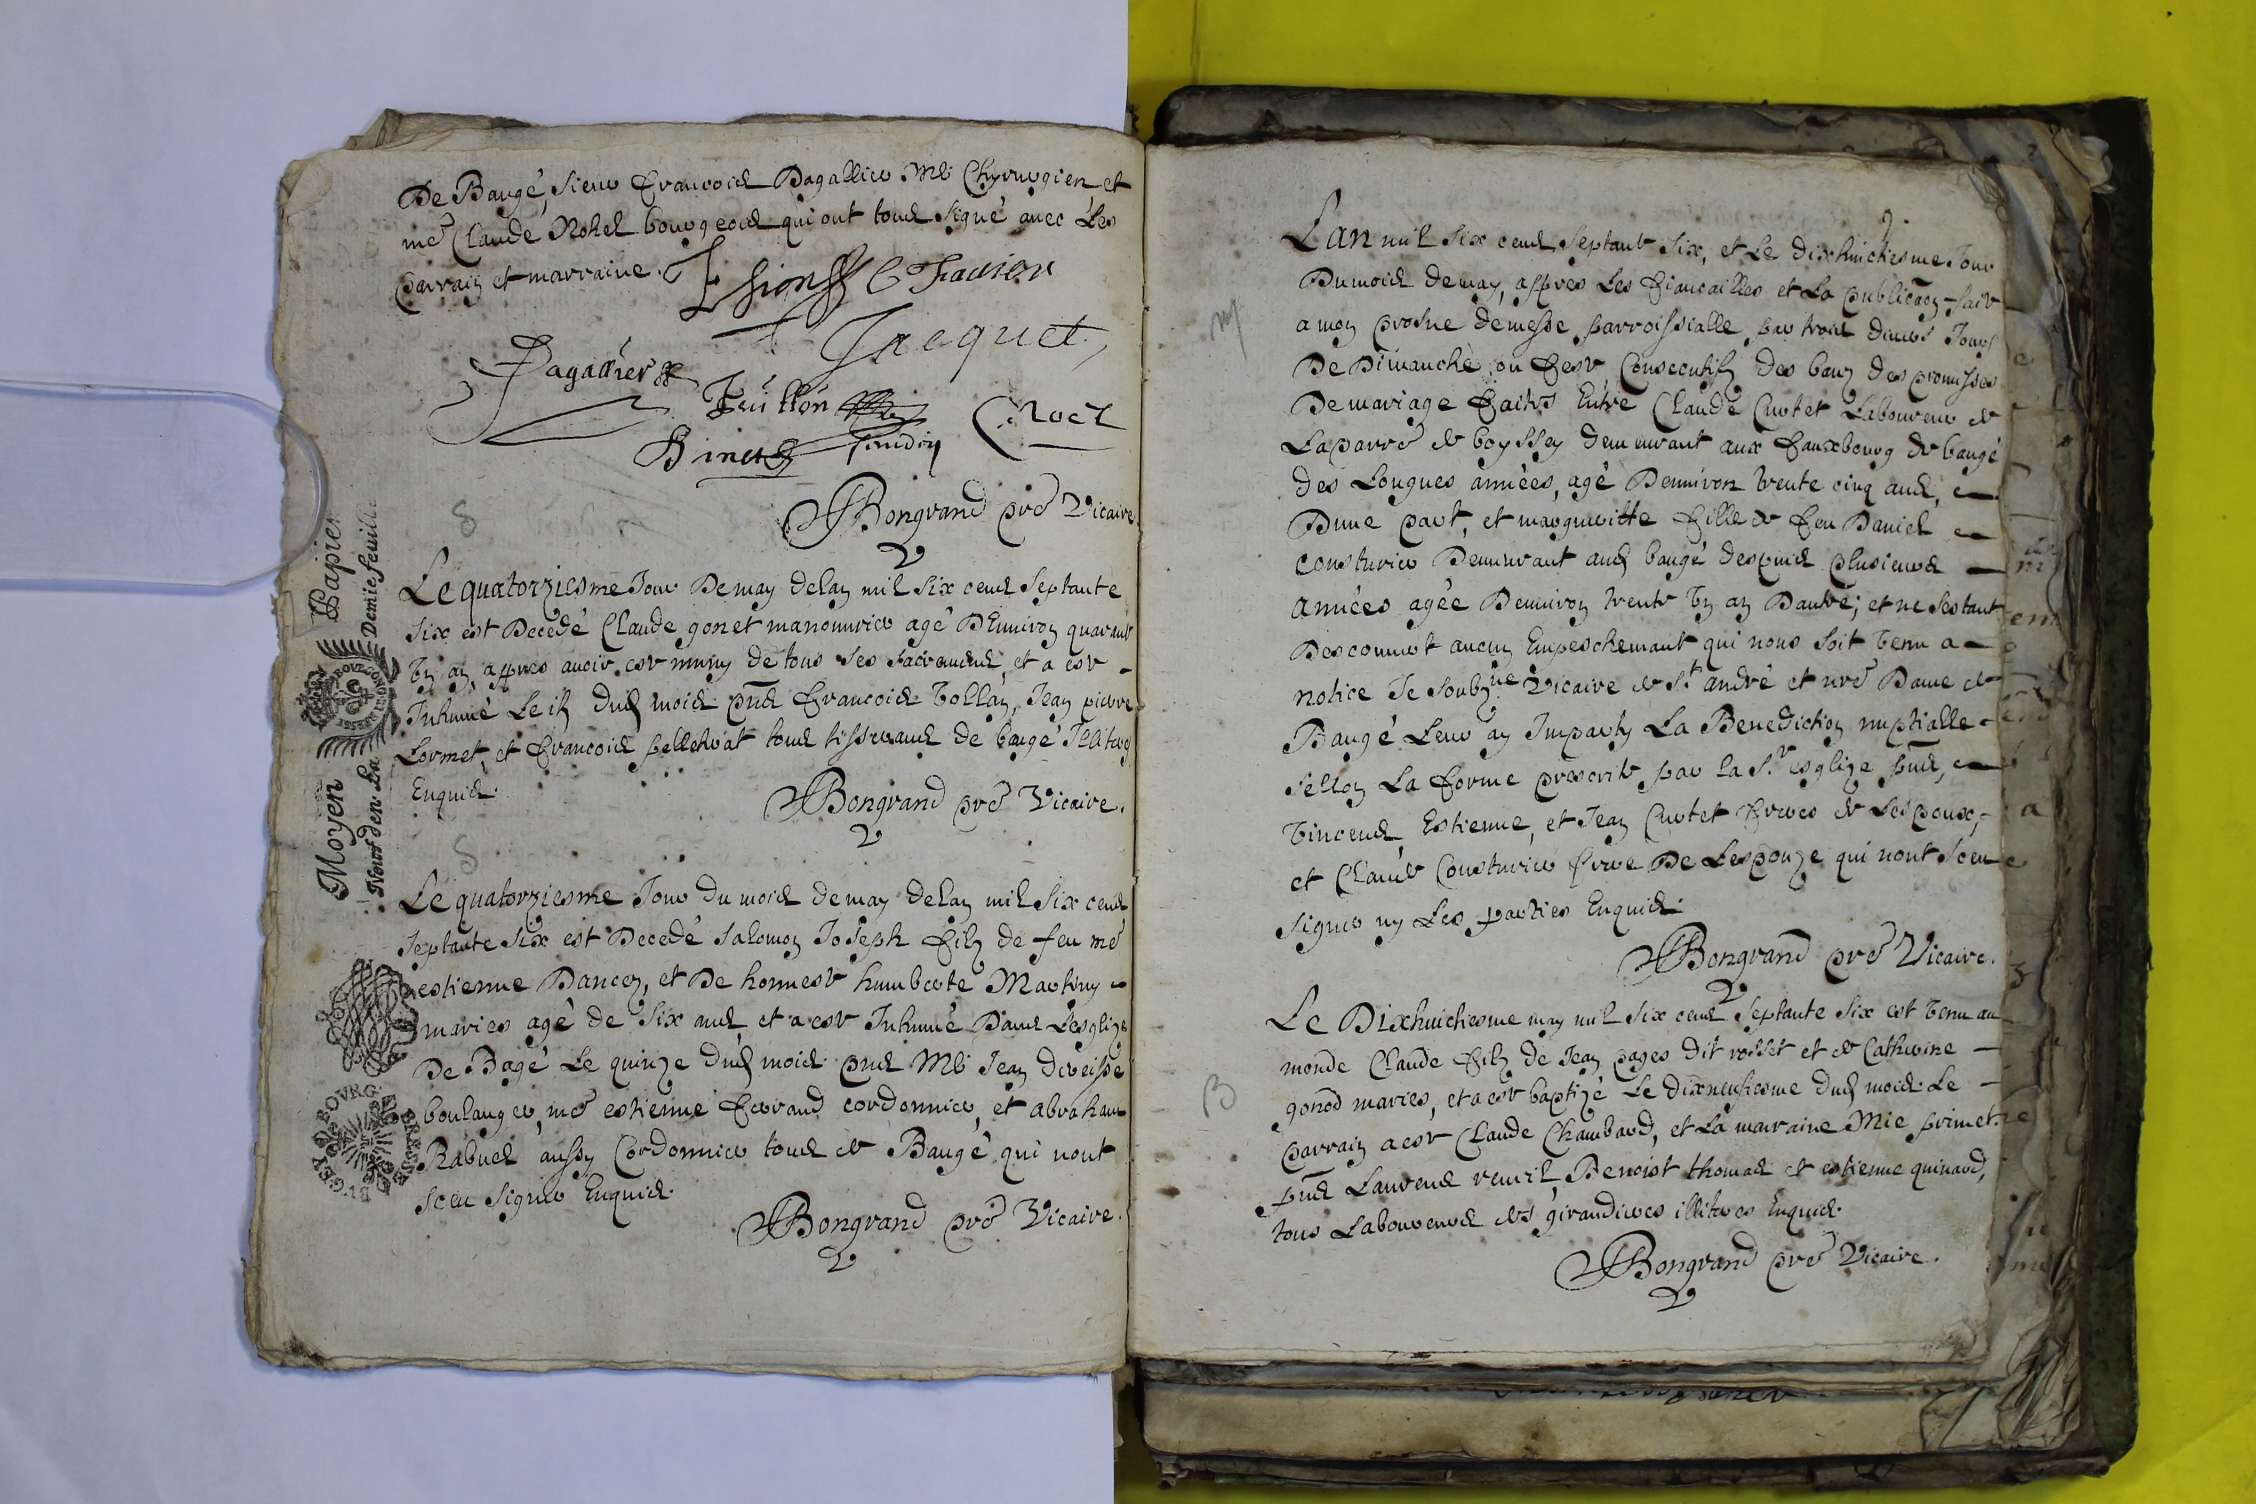 De Baugé, sieur francois Pagallier Mre Chyrurgien et
me Claude Nohel bourgeois qui ont tous signé avec Les
parrain et marraine.
C Favier
Jacquet
Pagallier
Feüillon
Noel
Bongrand pre Vicaire
8
Le quatorziesme Jour De may de lan mil six cens septante
six est Decedé Claude gonet manouvrier agé Denviron quarante
Un an, appres avoir este muny de tous ses sacremens, et a este
Inhumé Le 15 dud mois pns francois Vollan, Jean pierre
Lormet, et francois pelletrat tous tisserans de baugé Illitres
Enquis.
Bongrand pre Vicaire.
8
Moyen Papier
Neuf den. La Demie feuille
Le quatorziesme Jour du mois de may de lan mil six cens
septante six est Decedé salomon Joseph fils de feu me
estienne Dancen, et De honneste humberte Martiny
maries agé de six ans et a este Inhumé Dans Lesglize
De Bagé Le quinze dud mois pns Mre Jean
boulanger, me estienne ferrand cordonnier, et abraham
Rabuel aussy Cordonnier tous de Baugé qui nont
sceu signer Enquis.
Bongrand pre Vicaire.
BOVRG
BVGEY
BRESSE
9.
m
Lan mil six cens septante six, et Le dixhuictiesme Jour
Du mois de may, appres Les fiancailles et La publicaon faite
a mon prosne de messe parroissialle par trois divers Jours
De Dimanche ou feste Consecutifs des bans des promesses
De mariage faites Entre Claude Curtet Laboureur de
La parre de boyssey demeurant aux fauxbourg de baugé
des Longues années, agé Denviron trente cinq ans,
Dune part, et marguerite fille de feu Daniel
Consturier Demeurant aud baugé despuis plusieurs
années agée Denviron trente Un an Dautre; et ne sestant
Descouvert aucun Empeschemant qui nous soit Venu a
notice Je soubzne Vicaire de St andré et nre Dame de
Baugé Leur ay Imparty La Benediction nuptialle
sellon La forme prescrite par la Ste esglize pns,
Vincens, Estienne, et Jean Curtet freres de Lespoux,
et Claude Consturier frere De Lespouze qui nont sceu
signer ny Les parties Enquis.
Bongrand pre Vicaire.
B
Le Dixhuictiesme may mil six cens septante six est Venu au
monde Claude fils de Jean pages dit rosset et de Catherine
gonod maries, et a este baptizé Le dixneufiesme dud mois Le
parrain a este Claude Chambard, et La marraine Mie primet.
pns Laurens revil, Benoist thomas et estienne quinard,
tous Laboureurs des girandieres illitres Enquis.
Bongrand pre Vicaire.